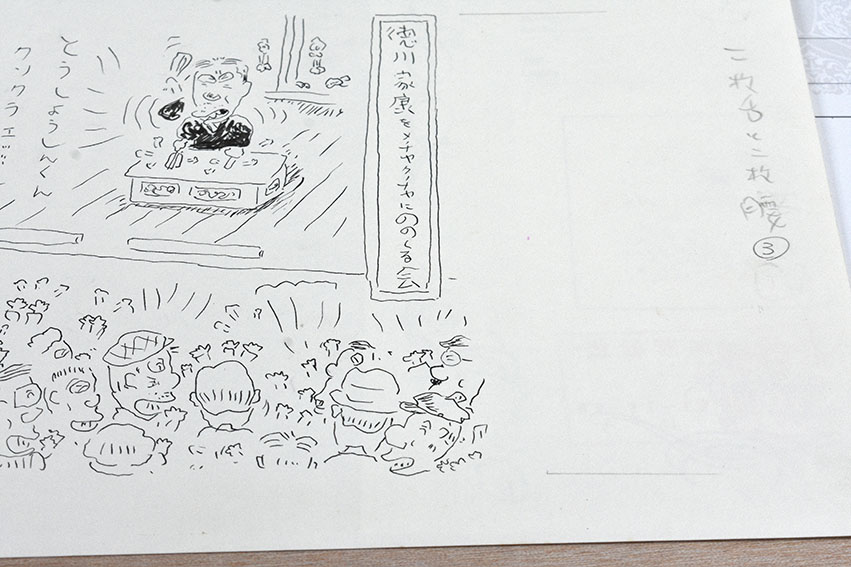 二枚舌と二枚腰③
徳川家康をメチャクチャにののしる会
とうしょうしんくん
クソクラエ